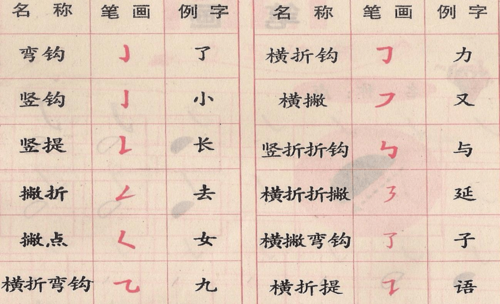 名称 笔画 例字
弯钩 亅 了
竖钩 亅 小
竖提 𠄌 长
撇折 𠃋 去
撇点 𡿨 女
横折弯钩 乁 九
名称 笔画 例字
横折钩 𠃌 力
横撇 ㇇ 又
竖折折钩 ㇉ 与
横折折撇 ㇋ 延
横撇弯钩 ㇌ 子
横折提 ㇊ 语